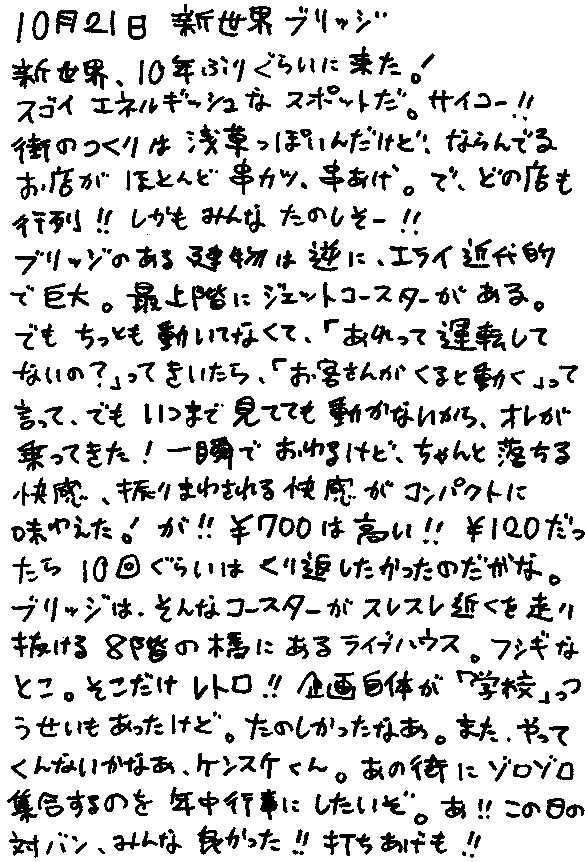 10月21日 新世界 ブリッジ
新世界、10年ぶりぐらいに来た!
スゴイ エネルギッシュな スポットだ。サイコー!!
街のつくりは 浅草っぽいんだけど、ならんでる
お店が ほとんど 串カツ、串あげ。で、どの店も
行列!! しかも みんな たのしそー!!
ブリッジのある 建物は 逆に、エライ 近代的
で 巨大。最上階に ジェットコースターが ある。
でも ちっとも 動いてなくて、「あれって 運転して
ないの?」って きいたら、「お客さんが くると 動く」って
言って、でも いつまで 見てても 動かないから、オレが
乗ってきた! 一瞬で おわるけど、ちゃんと 落ちる
快感、振りまわされる 快感が コンパクトに
味わえた! が!! ¥700は 高い!! ¥120だっ
たら 10回ぐらいは くり返したかったのだがな。
ブリッジは、そんなコースターが スレスレ 近くを 走り
抜ける 8階の 橋に あるライブハウス。フシギな
とこ。そこだけ レトロ!! 企画自体が「学校」っつ
うせいもあったけど。たのしかったなあ。また、やって
くんないかなあ、ケンスケくん。あの街に ゾロゾロ
集合するのを 年中行事に したいぞ。あ!! この日の
対バン、みんな 良かった!! 打ちあげも!!